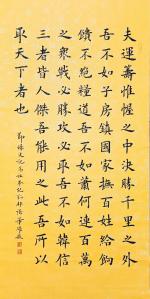 夫運籌帷幄之中決勝千里之外
吾不如子房鎮國家撫百姓給餉
饋不絕糧道吾不如蕭何連百萬
之衆戰必勝攻必取吾不如韓信
三者皆人傑吾能用之此吾所以
取天下者也
節錄史記高祖本紀